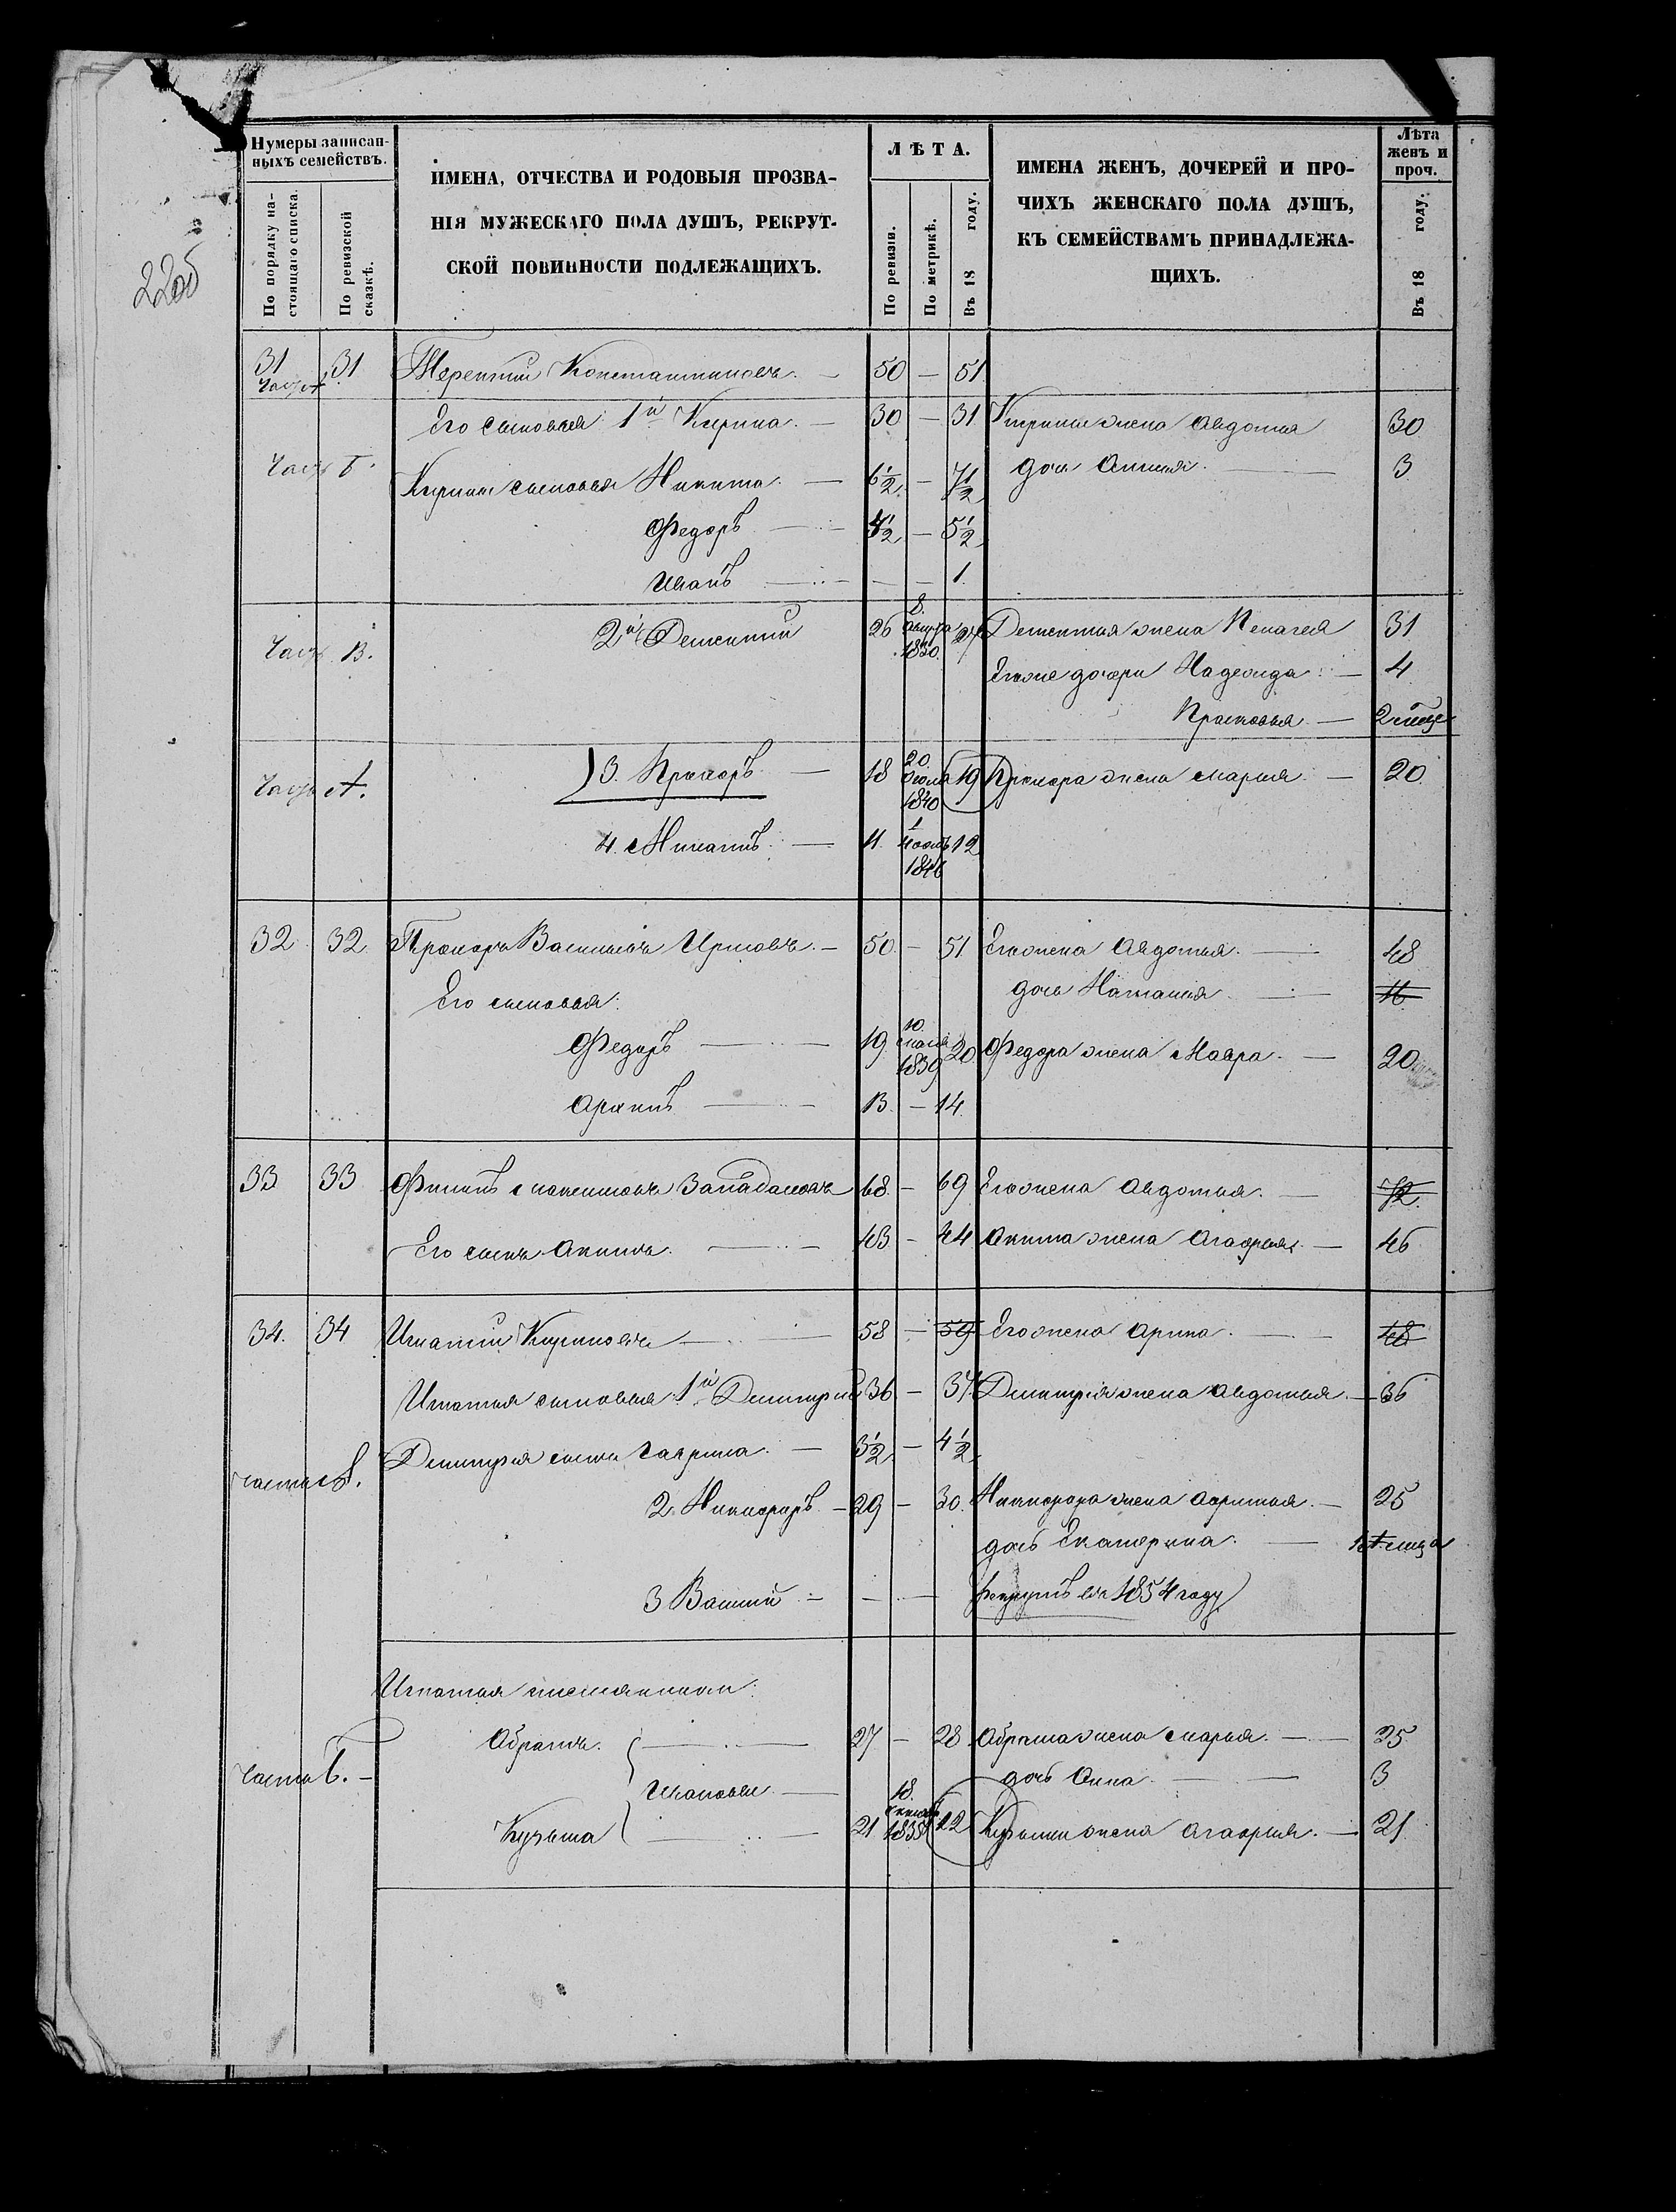 220б
Нумеры записан-
ныхъ семействъ.
По порядку на-
стоящаго списка.
По ревизской
сказкѣ.
ИМЕНА, ОТЧЕСТВА И РОДОВЫЯ ПРОЗВА-
НІЯ МУЖЕСКАГО ПОЛА ДУШЪ, РЕКРУТ-
СКОЙ ПОВИННОСТИ ПОДЛЕЖАЩИХЪ.
ЛѢТА.
По ревизіи.
По метрикѣ.
Въ 18 году.
ИМЕНА ЖЕНЪ, ДОЧЕРЕЙ И ПРО-
ЧИХЪ ЖЕНСКАГО ПОЛА ДУШЪ,
КЪ СЕМЕЙСТВАМЪ ПРИНАДЛЕЖА-
ЩИХЪ.
Лѣта
женъ и
проч.
Въ 18 году.
31 31 Терентий Константиновъ. — 50 — 51
Часть А
Его сыновья 1й Кирила. — 30 — 31 Кирилы жена Авдотья 30
Часть Б. Кирилы сыновья Никита. — 6½ — 7½ дочь 3
Федоръ — 4½ — 5½
Иванъ — — — 1.
Часть В. 2й Дементий 26 8. Августа 1830. 27 Дементья жена Пелагея 31
Егоже дочери Надежда — 4
Прасковья — 2 месяц
Часть А. 3. Прохоръ — 18 20 Июля 1840 19 Прохора жена Марья — 20
4. — 11. 1 1846 12
32 32 Прохоръ Васильевъ — 50 — 51 Его жена Авдотья. — 48
Его сыновья: дочь Наталья — 16
Федоръ — 19 10. 1839 20 Федора жена Мавра. — 20
Архипъ — 13 — 14
33 33 Филипъ 68 — 69 Его жена Авдотья. — 72.
Его сынъ Акимъ. — 43 — 44 Акима жена Агафья. — 46
34. 34 Игнатий Кириловъ — 58 — 59 Его жена Арина. — 48
Игнатья сыновья 1й Димитрий 36 — 37 Димитрия жена Авдотья. — 36
Димитрия сынъ Гаврила. — 3½ — 4½
часть А.
2. Никифоръ — 29 — 30. Никифора жена — 25
дочь Екатерина. —
3 Василий — — — рекрутъ въ 1854 году
Игнатья племянники:
Абрамъ. — 27 — 28 Абрама жена Марья. — 25
часть Б. — Ивановы — дочь Анна. — 3
Кузьма — 21 18. 1838 22 Кузьмы жена Агафья. — 21